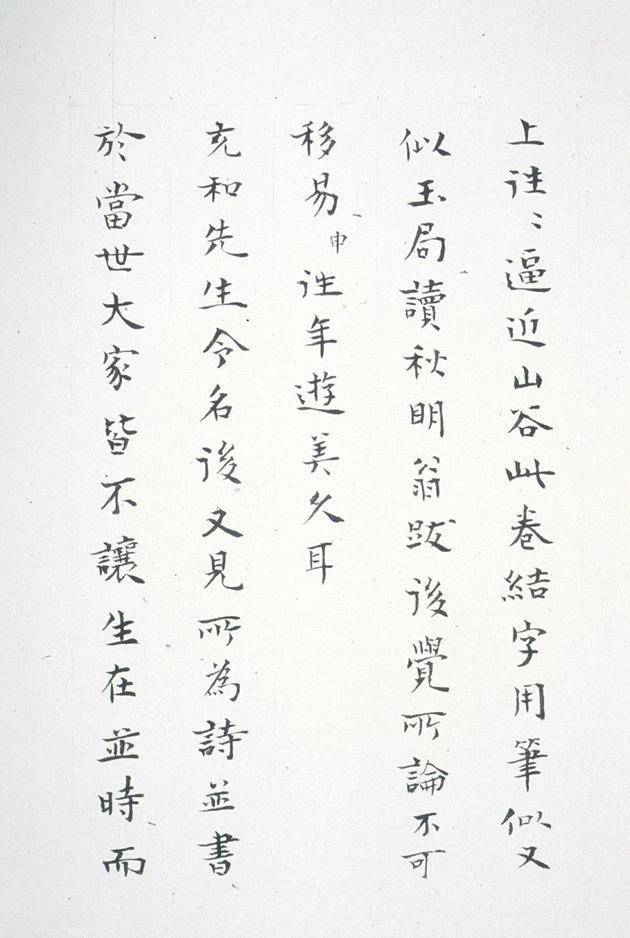 上往〻逼近山谷此卷結字用筆似又
似玉局讀秋明翁跋後覺所論不可
移易申往年遊美久耳
充和先生令名後又見所為詩並書
於當世大家皆不讓生在並時而